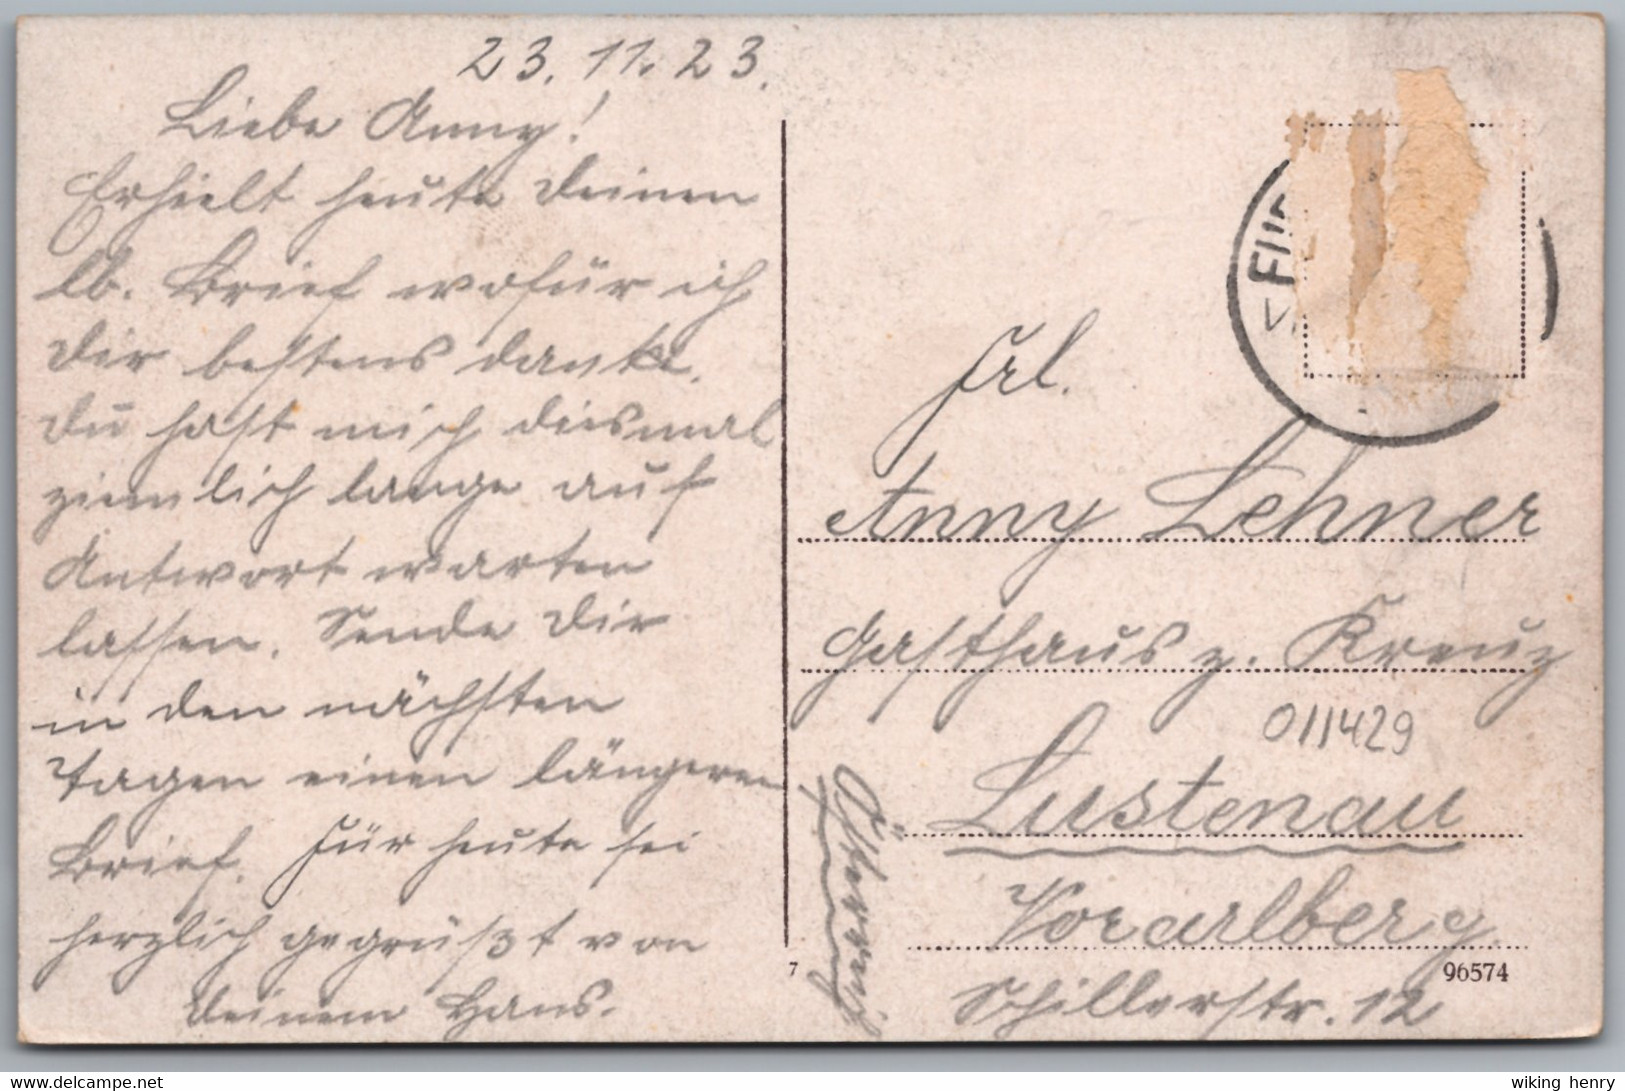 23.11.23.
Liebe Anny!
Erhielt heute Deinen
lb. Brief wofür ich
Dir bestens danke.
Du hast mich diesmal
ziemlich lange auf
Antwort warten
lassen. Sende Dir
in den nächsten
Tagen einen längeren
Brief. Für heute sei
herzlich gegrüßt von
Deinem Hans.
Frl.
Anny Lehner
Gasthaus z. Kreuz
011429
Lustenau
Vorarlberg.
Schillerstr. 12
Österreich
7
96574
www.delcampe.net
wiking_henry